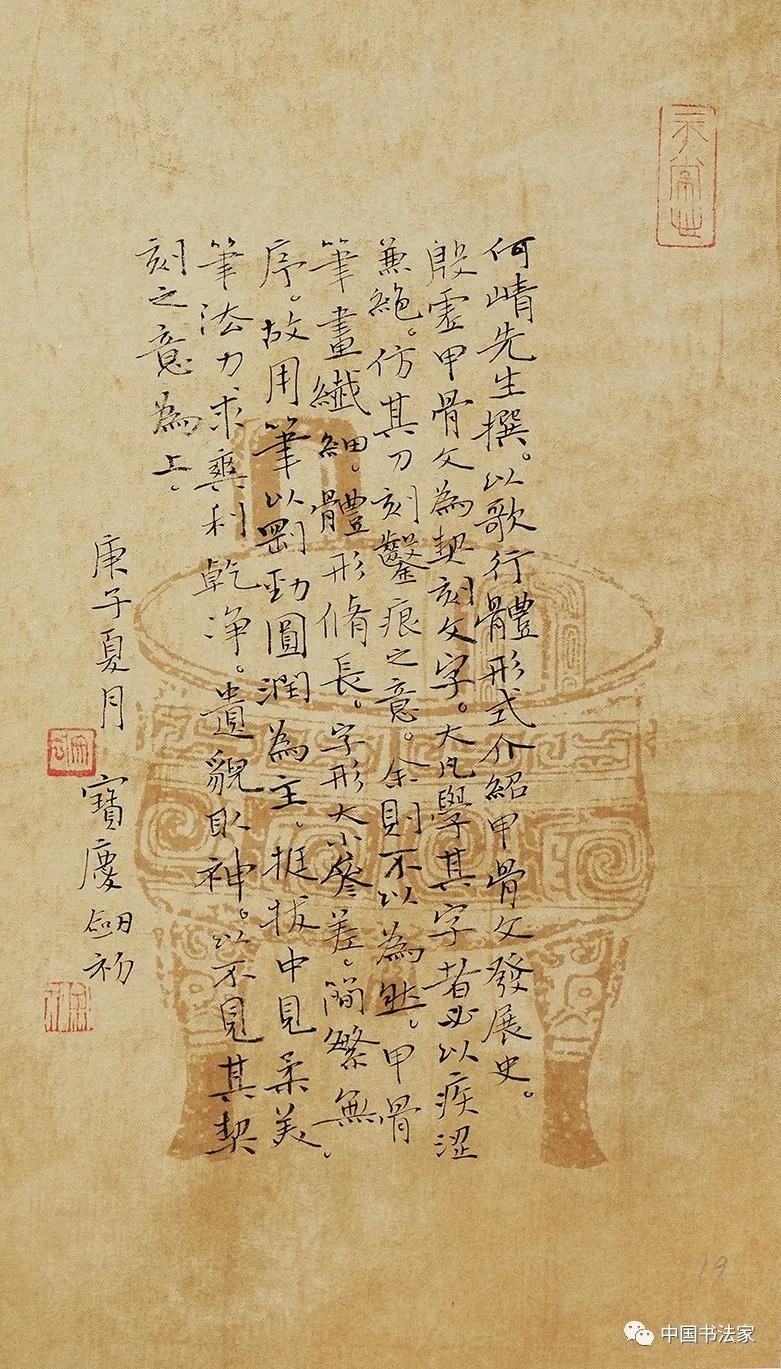 何崝先生撰。以歌行體形式介紹甲骨文發展史。
殷虛甲骨文為契刻文字。大凡學其字者必以疾澀
兼絶。仿其刀刻鑿痕之意。余則不以為然。甲骨
筆畫纖細。體形脩長。字形大小參差。簡繁無
序。故用筆以剛勁圓潤為主。挺拔中見柔美。
筆法力求爽利乾净。遺貌取神。以不見其契
刻之意為上。
庚子夏月
寶慶劒初
19
中国书法家